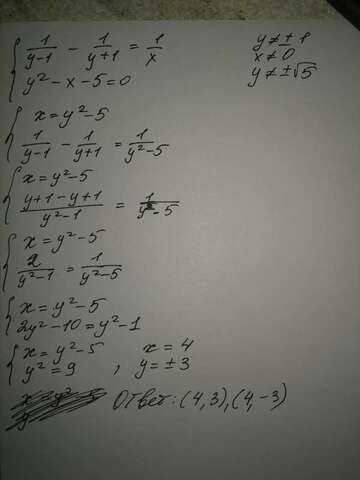 1/(y-1) - 1/(y+1) = 1/x
y² - x - 5 = 0
y ≠ ± 1
x ≠ 0
y ≠ ±√5
x = y² - 5
1/(y-1) - 1/(y+1) = 1/(y²-5)
x = y² - 5
(y+1-y+1)/(y²-1) = 1/(y²-5)
x = y² - 5
2/(y²-1) = 1/(y²-5)
x = y² - 5
2y² - 10 = y² - 1
x = y² - 5
y² = 9 ,
x = 4
y = ± 3
Ответ: (4,3), (4,-3)